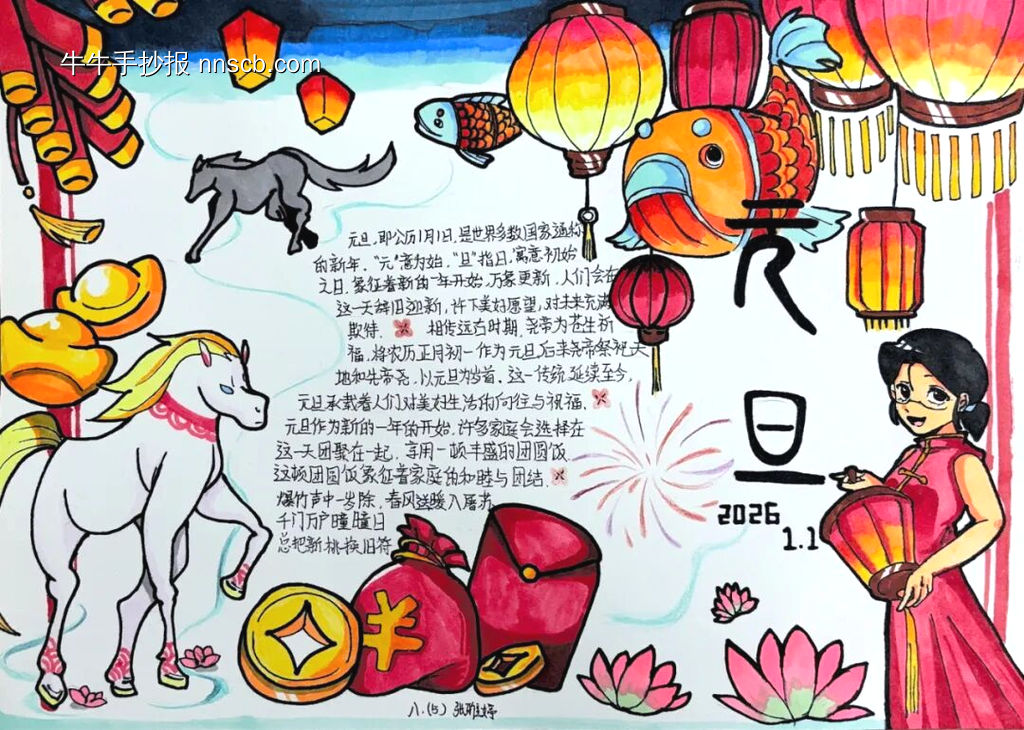 牛牛手抄报 nnscb.com
元旦,即公历1月1日,是世界多数国家通称
的新年。“元”意为始,“旦”指日,寓意初始
之日,象征着新的一年开始,万象更新,人们会在
这一天辞旧迎新,许下美好愿望,对未来充满
期待。相传远古时期,尧帝为苍生祈
福,将农历正月初一作为元旦,后来尧帝祭祀天
地和先帝尧,以元旦为岁首。这一传统延续至今,
元旦承载着人们对美好生活的向往与祝福。
元旦作为新的一年的开始,许多家庭会选择在
这一天团聚在一起,享用一顿丰盛的团圆饭
这顿团圆饭象征着家庭的和睦与团结。
爆竹声中一岁除,春风送暖入屠苏
千门万户瞳瞳日
总把新桃换旧符
元
旦
2026
1.1
八.(5) 张雅婷